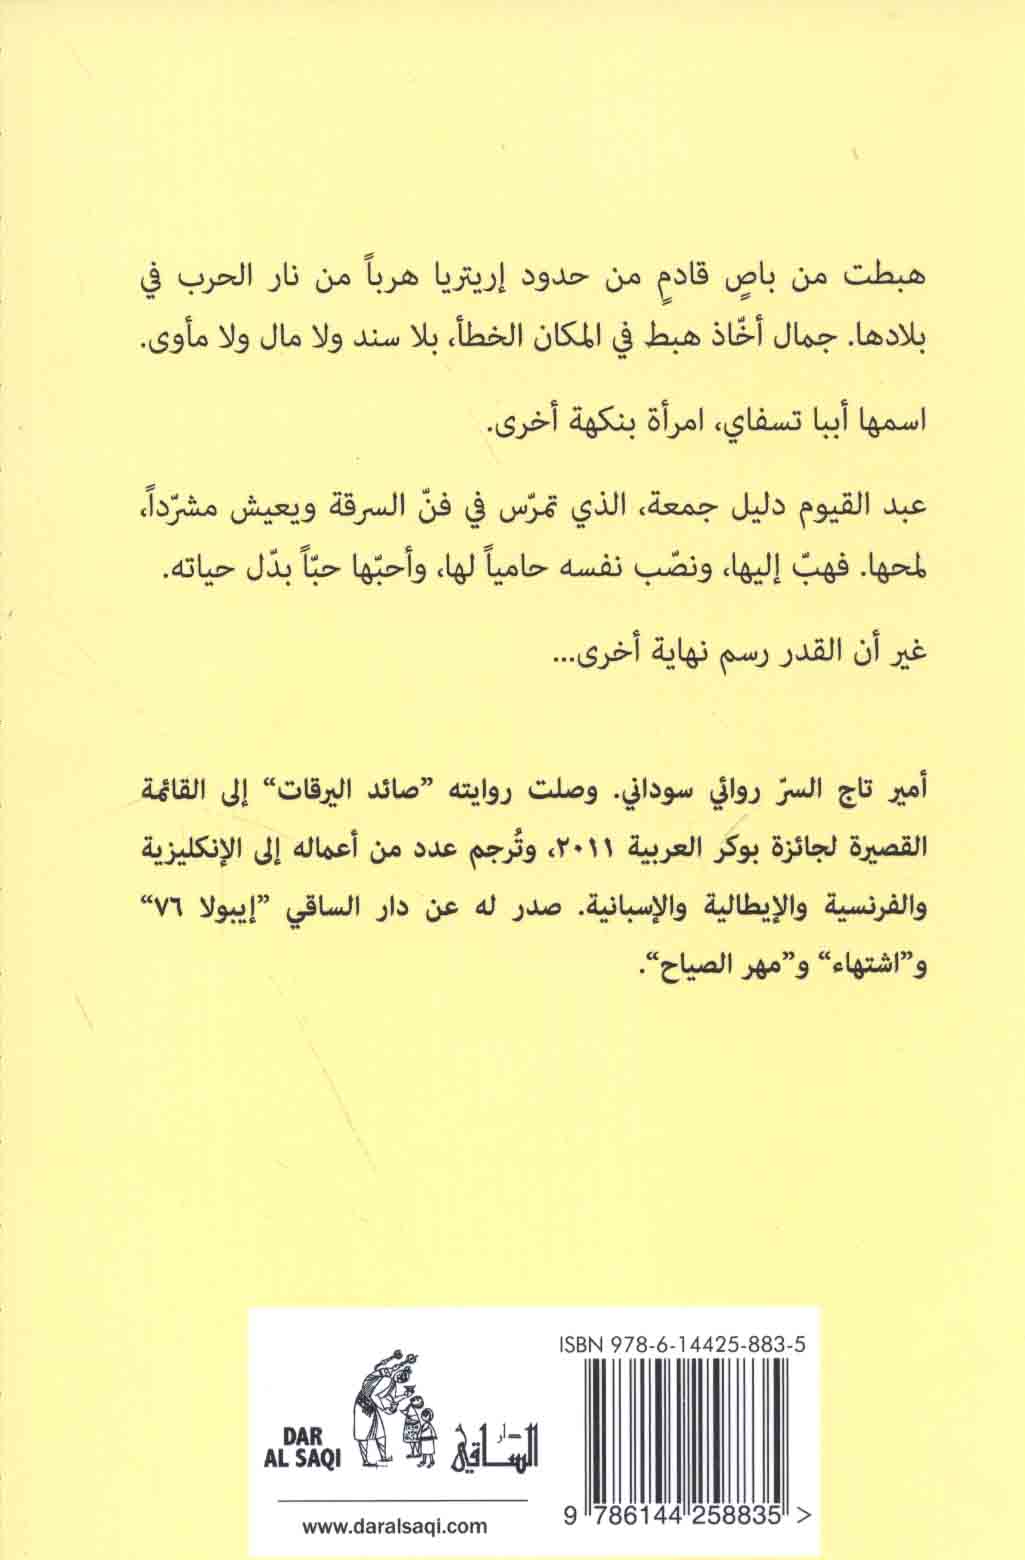 هبطت من باصٍ قادمٍ من حدود إريتريا هرباً من نار الحرب في
بلادها. جمال أخّاذ هبط في المكان الخطأ، بلا سند ولا مال ولا مأوى.
اسمها أببا تسفاي، امرأة بنكهة أخرى.
عبد القيوم دليل جمعة، الذي تمرّس في فنّ السرقة ويعيش مشرّداً،
لمحها. فهبّ إليها، ونصّب نفسه حامياً لها، وأحبّها حبّاً بدّل حياته.
غير أن القدر رسم نهاية أخرى...
أمير تاج السرّ روائي سوداني. وصلت روايته ”صائد اليرقات“ إلى القائمة
القصيرة لجائزة بوكر العربية ٢٠١١، وتُرجم عدد من أعماله إلى الإنكليزية
والفرنسية والإيطالية والإسبانية. صدر له عن دار الساقي ”إيبولا ٧٦“
و”اشتهاء“ و”مهر الصياح“.
ISBN 978-6-14425-883-5
DAR
AL SAQI
دار الساقي
www.daralsaqi.com
9 786144 258835 >